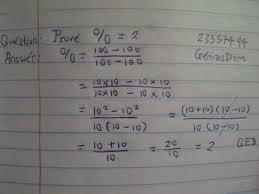 Question: Prove 0/0 = 2 23557494
Answer: 0/0 = (100 - 100)/(100 - 100) GeniusDom
= (10×10 - 10×10)/(10×10 - 10×10)
= (10² - 10²)/(10(10-10)) = ((10+10)(10-10))/(10(10-10))
= (10+10)/10 = 20/10 = 2 QED